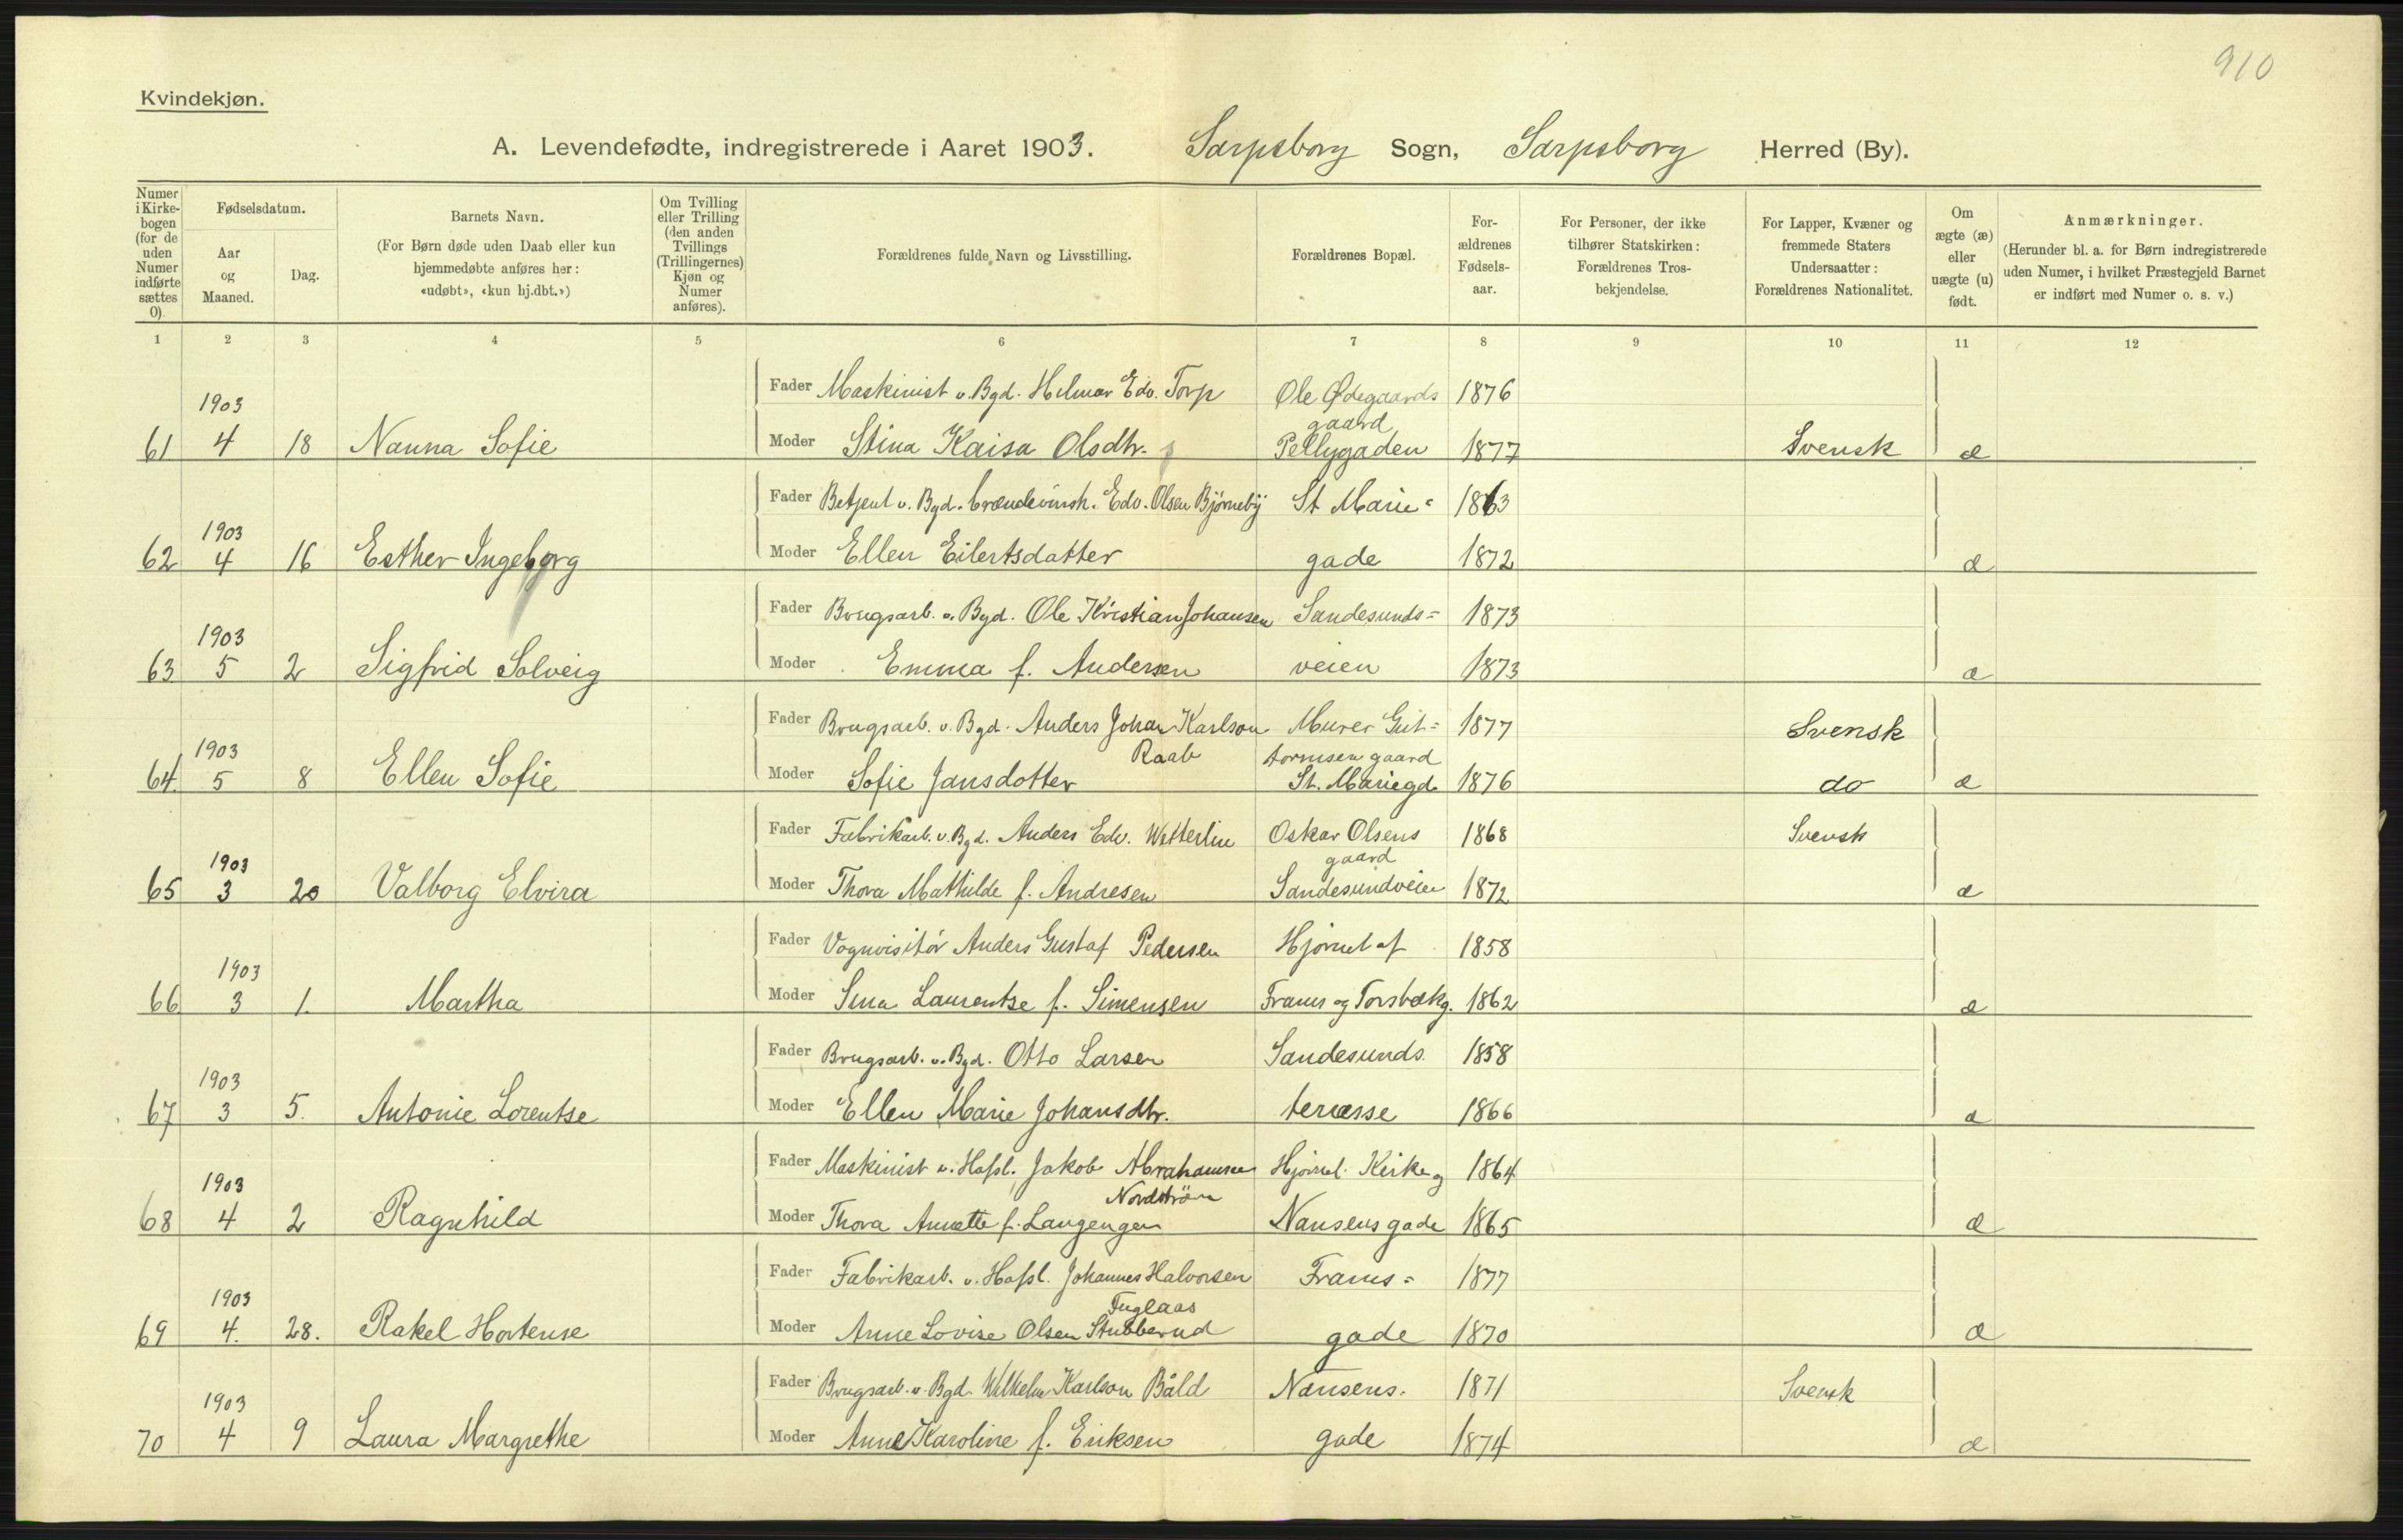 910
Kvindekjøn.
A. Levendefødte, indregistrerede i Aaret 1903. Sarpsborg Sogn, Sarpsborg Herred (By).
Numer i Kirke-bogen (for de uden Numer indførte sættes 0)
Fødselsdatum.
Aar og Maaned.
Dag.
Barnets Navn.
(For Børn døde uden Daab eller kun
hjemmedøbte anføres her:
«udøbt», «kun hj.dbt.»)
Om Tvilling
eller Trilling
(den anden
Tvillings
(Trillingernes)
Kjøn og
Numer
anføres).
Forældrenes fulde Navn og Livsstilling.
Forældrenes Bopæl.
For-
ældrenes
Fødsels-
aar.
For Personer, der ikke
tilhører Statskirken:
Forældrenes Tros-
bekjendelse.
For Lapper, Kvæner og
fremmede Staters
Undersaatter:
Forældrenes Nationalitet.
Om
ægte (æ)
eller
uægte (u)
født.
Anmærkninger.
(Herunder bl. a. for Børn indregistrerede
uden Numer, i hvilket Præstegjeld Barnet
er indført med Numer o. s. v.)
1 2 3 4 5 6 7 8 9 10 11 12
Fader Maskinist v. Bgd. Hilmar Edv. Torp Ole Ødegaards 1876
1903 gaard
61 4 18 Nanna Sofie Moder Stina Kaisa Olsdtr. Pellygaden 1877 Svensk æ
Fader Betjent v. Bgd. brændevinsh. Edv. Olsen Bjørneby St Marie= 1863
1903
62 4 16 Esther Ingeborg Moder Ellen Eilertsdatter gade 1872 æ
Fader Brugsarb. v. Bgd. Ole Kristian Johansen Sandesunds= 1873
1903
63 5 2 Sigfrid Solveig Moder Emma f. Andersen veien 1873 æ
Fader Brugsarb. v. Bgd. Anders Johan Karlson Murer Gut= 1877 Svensk
1903 Raab tormsen gaard
64. 5 8 Ellen Sofie Moder Sofie Jansdotter St. Mariegd. 1876 do æ
Fader Fabrikarb. v. Bgd. Anders Edv. Wetterlin Oskar Olsens 1868 Svensk
1903 gaard
65 3 20 Valborg Elvira Moder Thora Mathilde f. Andresen Sandesundveien 1872 æ
Fader Vognvisitør Anders Gustaf Pedersen Hjørnet af 1858
1903
66 3 1. Martha Moder Sina Laurentze f. Simensen Frams og Torsbækg. 1862 æ
Fader Brugsarb. v. Bgd. Otto Larsen Sandesunds 1858
1903
67 3 5. Antonie Lorentse Moder Ellen Marie Johansdtr. terrasse 1866 æ
Fader Maskinist v. Hafsl. Jakob Abrahamsen Hjørnet Kirkeg 1864
1903 Nordström
68 4 2 Ragnhild Moder Thora Annette f. Langengen Nansensgade 1865 æ
Fader Fabrikarb. v. Hafsl. Johannes Halvorsen Frams= 1877
1903 Fuglaas
69 4. 28. Rakel Hortense Moder Anne Lovise Olsen Stubberud gade 1870 æ
Fader Brugsarb. v. Bgd. Wilhelm Karlson Båld Nansens. 1871 Svensk
1903
70 4 9 Laura Margrethe Moder Anne Karoline f. Eriksen gade 1874 æ